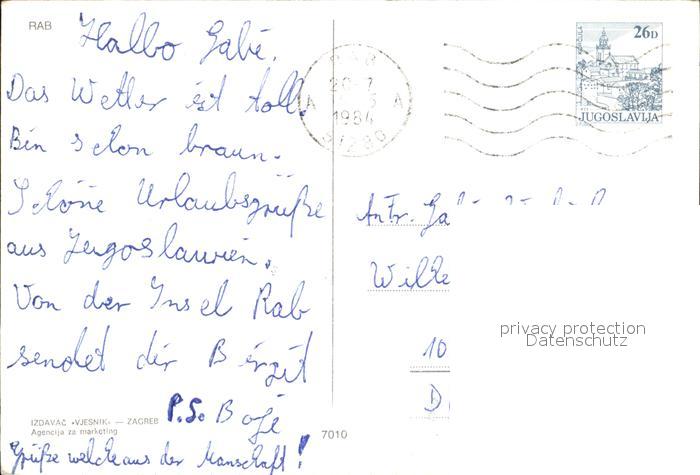 RAB
Hallo Gabi.
Das Wetter ist toll.
Bin schon braun.
Schöne Urlaubsgrüße
aus Jugoslawien.
Von der Insel Rab
sendet dir Birgit
P.S. Boje
Grüße welche aus der Manschaft!
IZDAVAČ »VJESNIK« — ZAGREB
Agencija za marketing
7010
RAB
20-7
1984
A A
51280
26D
JUGOSLAVIJA
An Fr. Ga
Wilke
10
D
privacy protection
Datenschutz